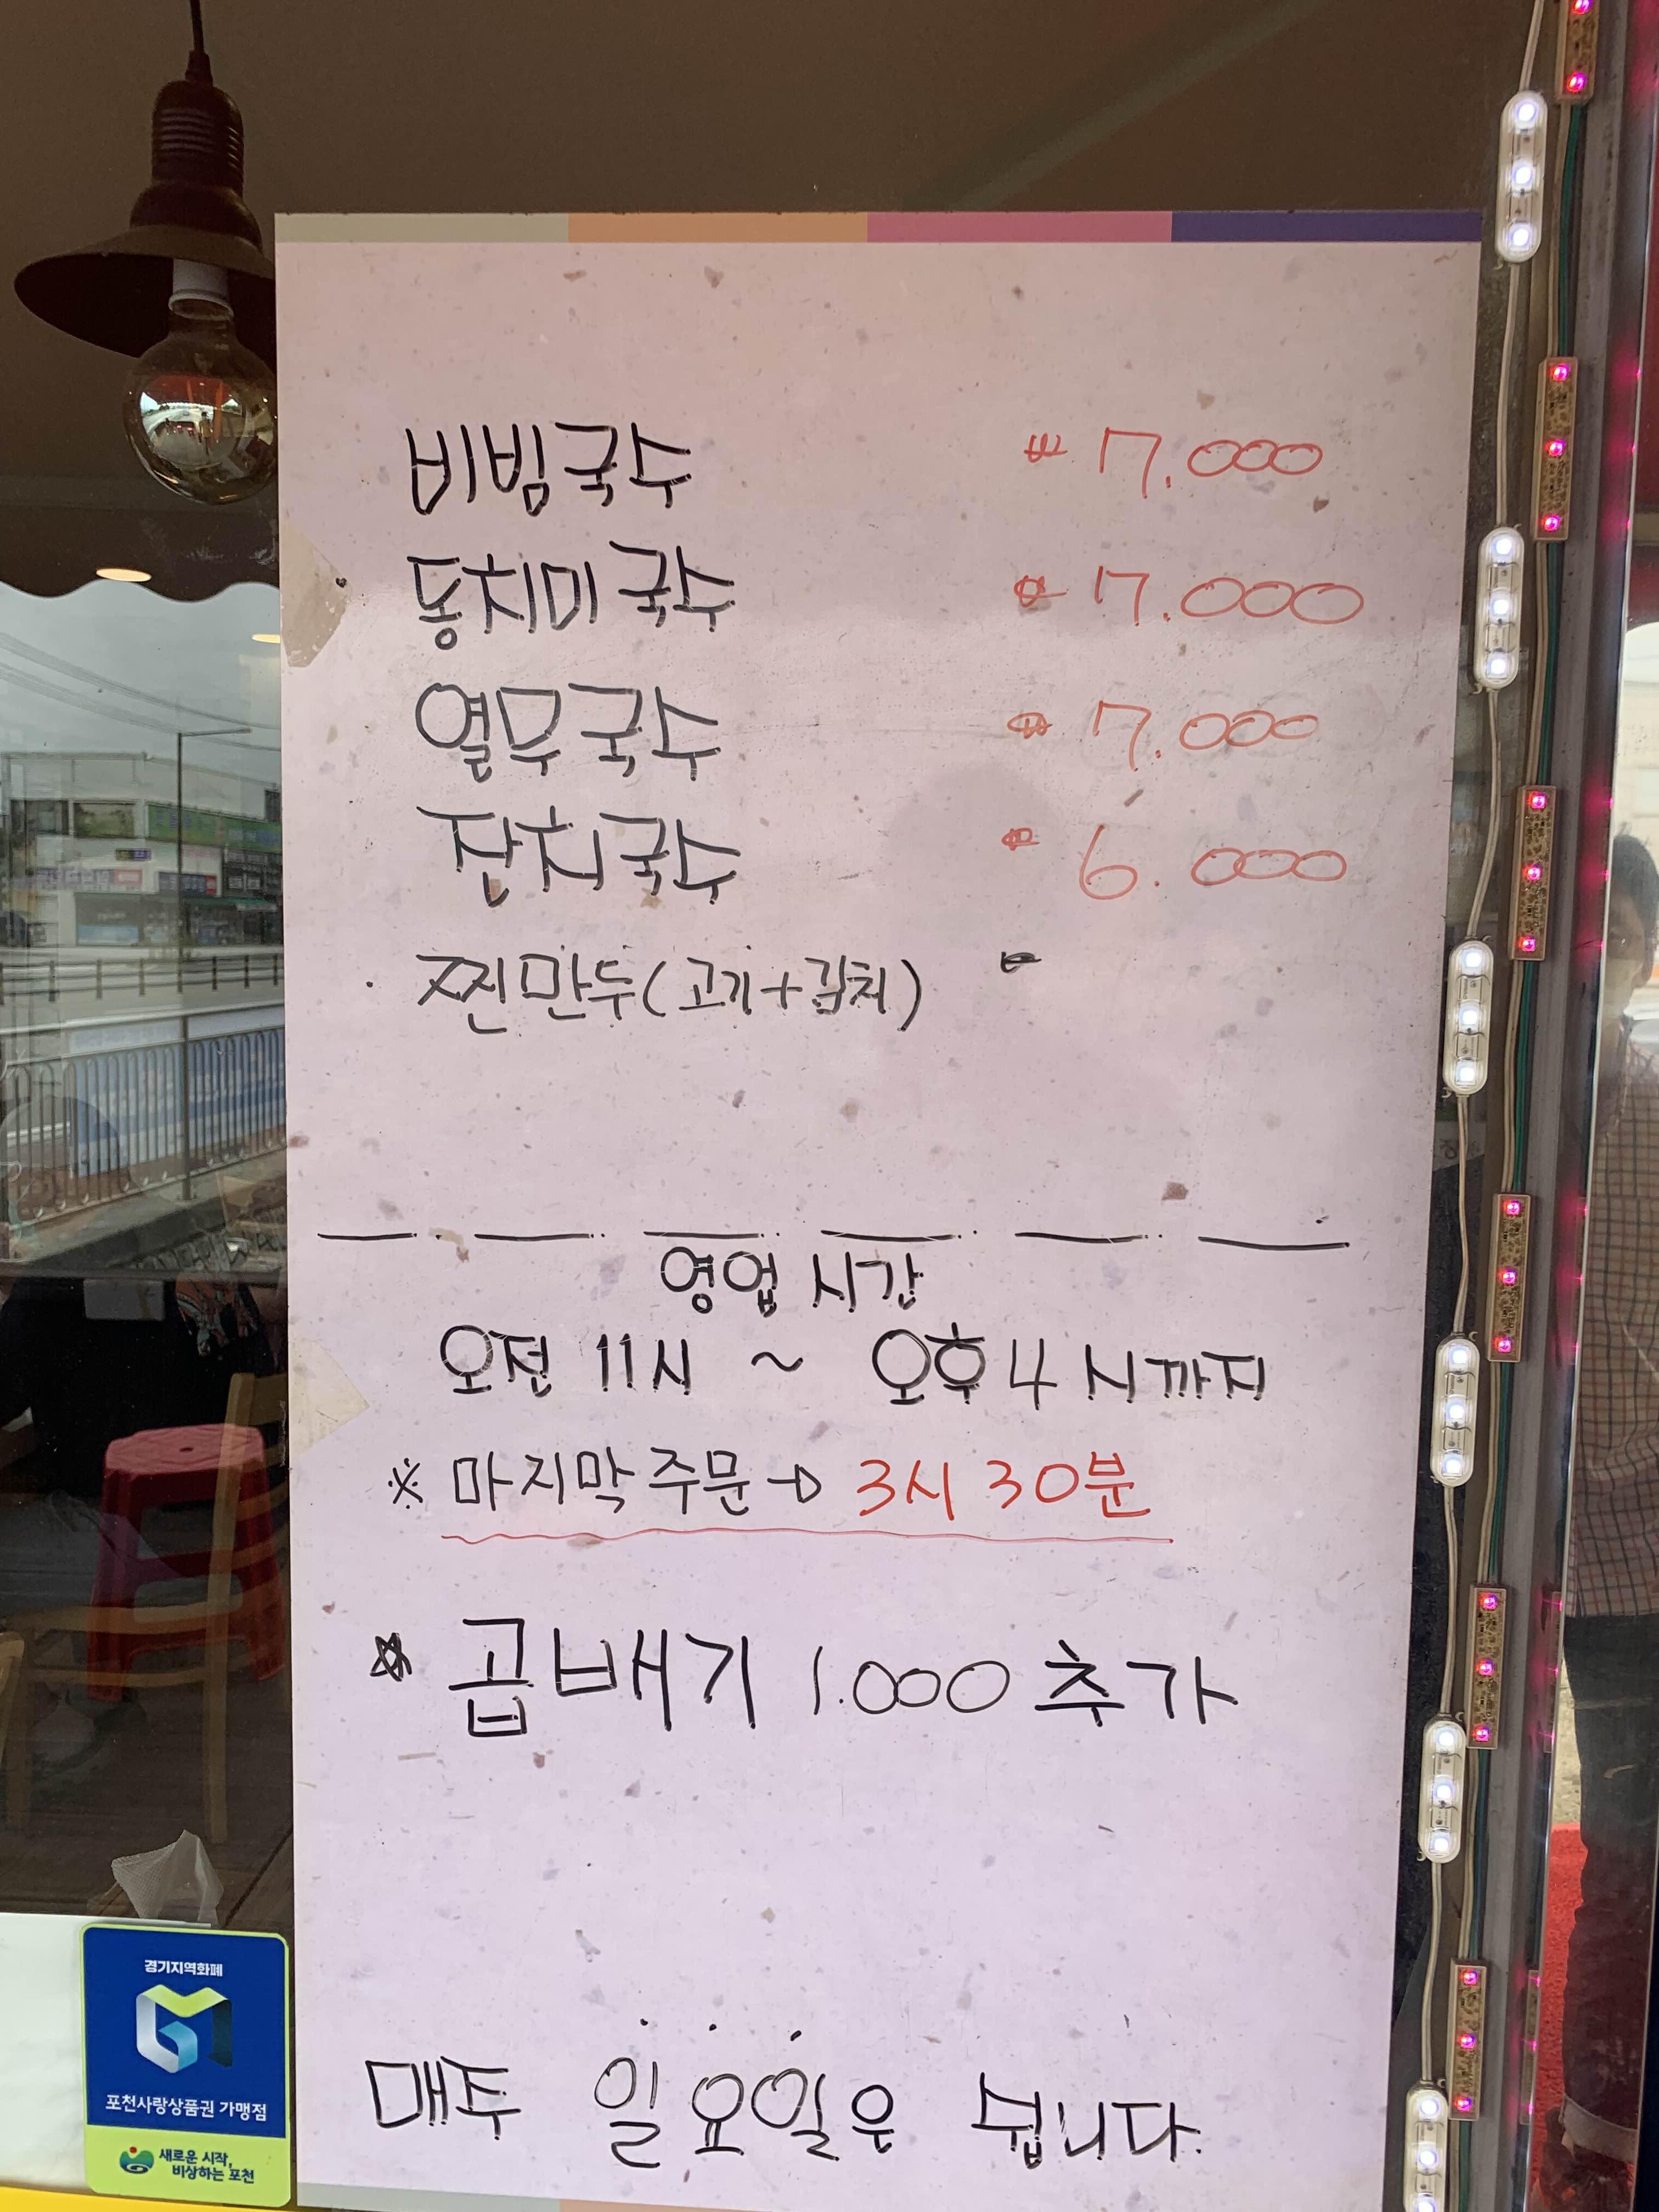 비빔국수 ₩ 7.000
동치미국수 ₩ 7.000
열무국수 ₩ 7.000
잔치국수 ₩ 6.000
찐만두(고기+김치)
영업시간
오전 11시 ~ 오후 4시까지
※ 마지막 주문→ 3시 30분
* 곱배기 1.000 추가
매주 일요일은 쉽니다.
경기지역화폐
포천사랑상품권 가맹점
새로운 시작,
비상하는 포천